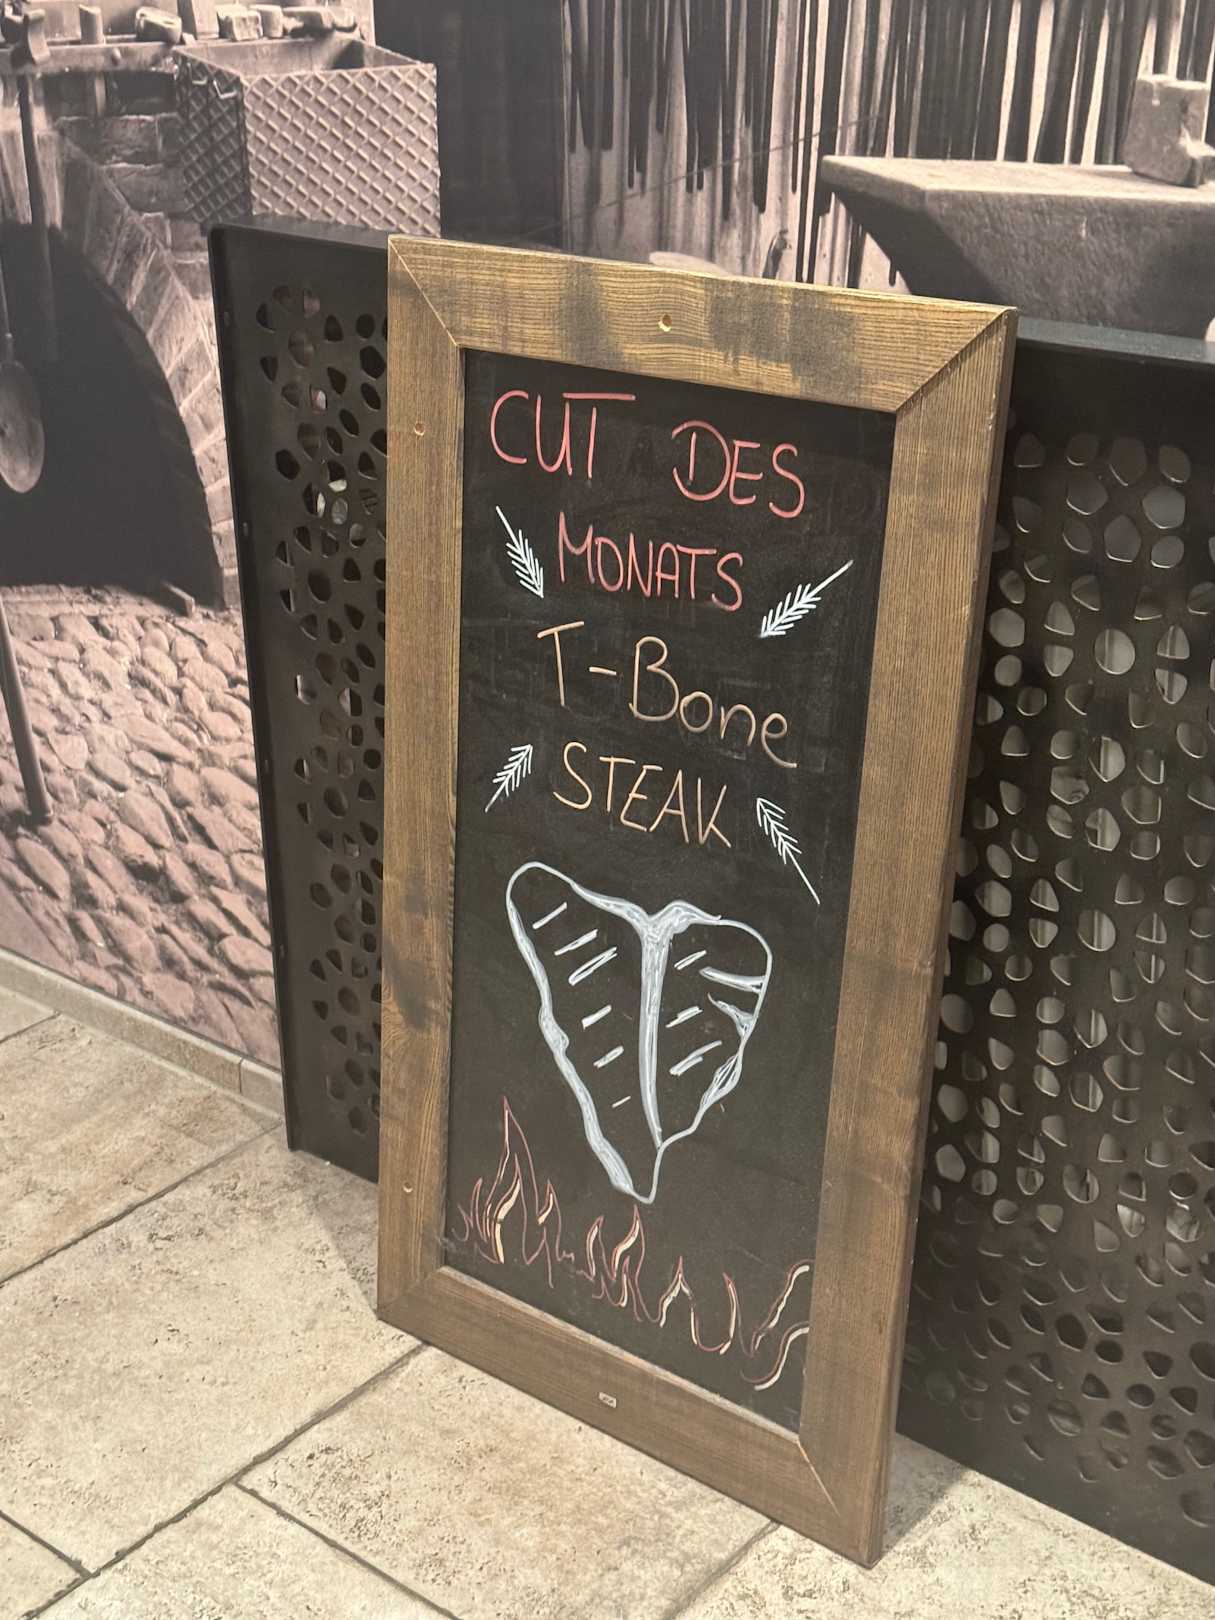 CUT DES
MONATS
T-Bone
STEAK